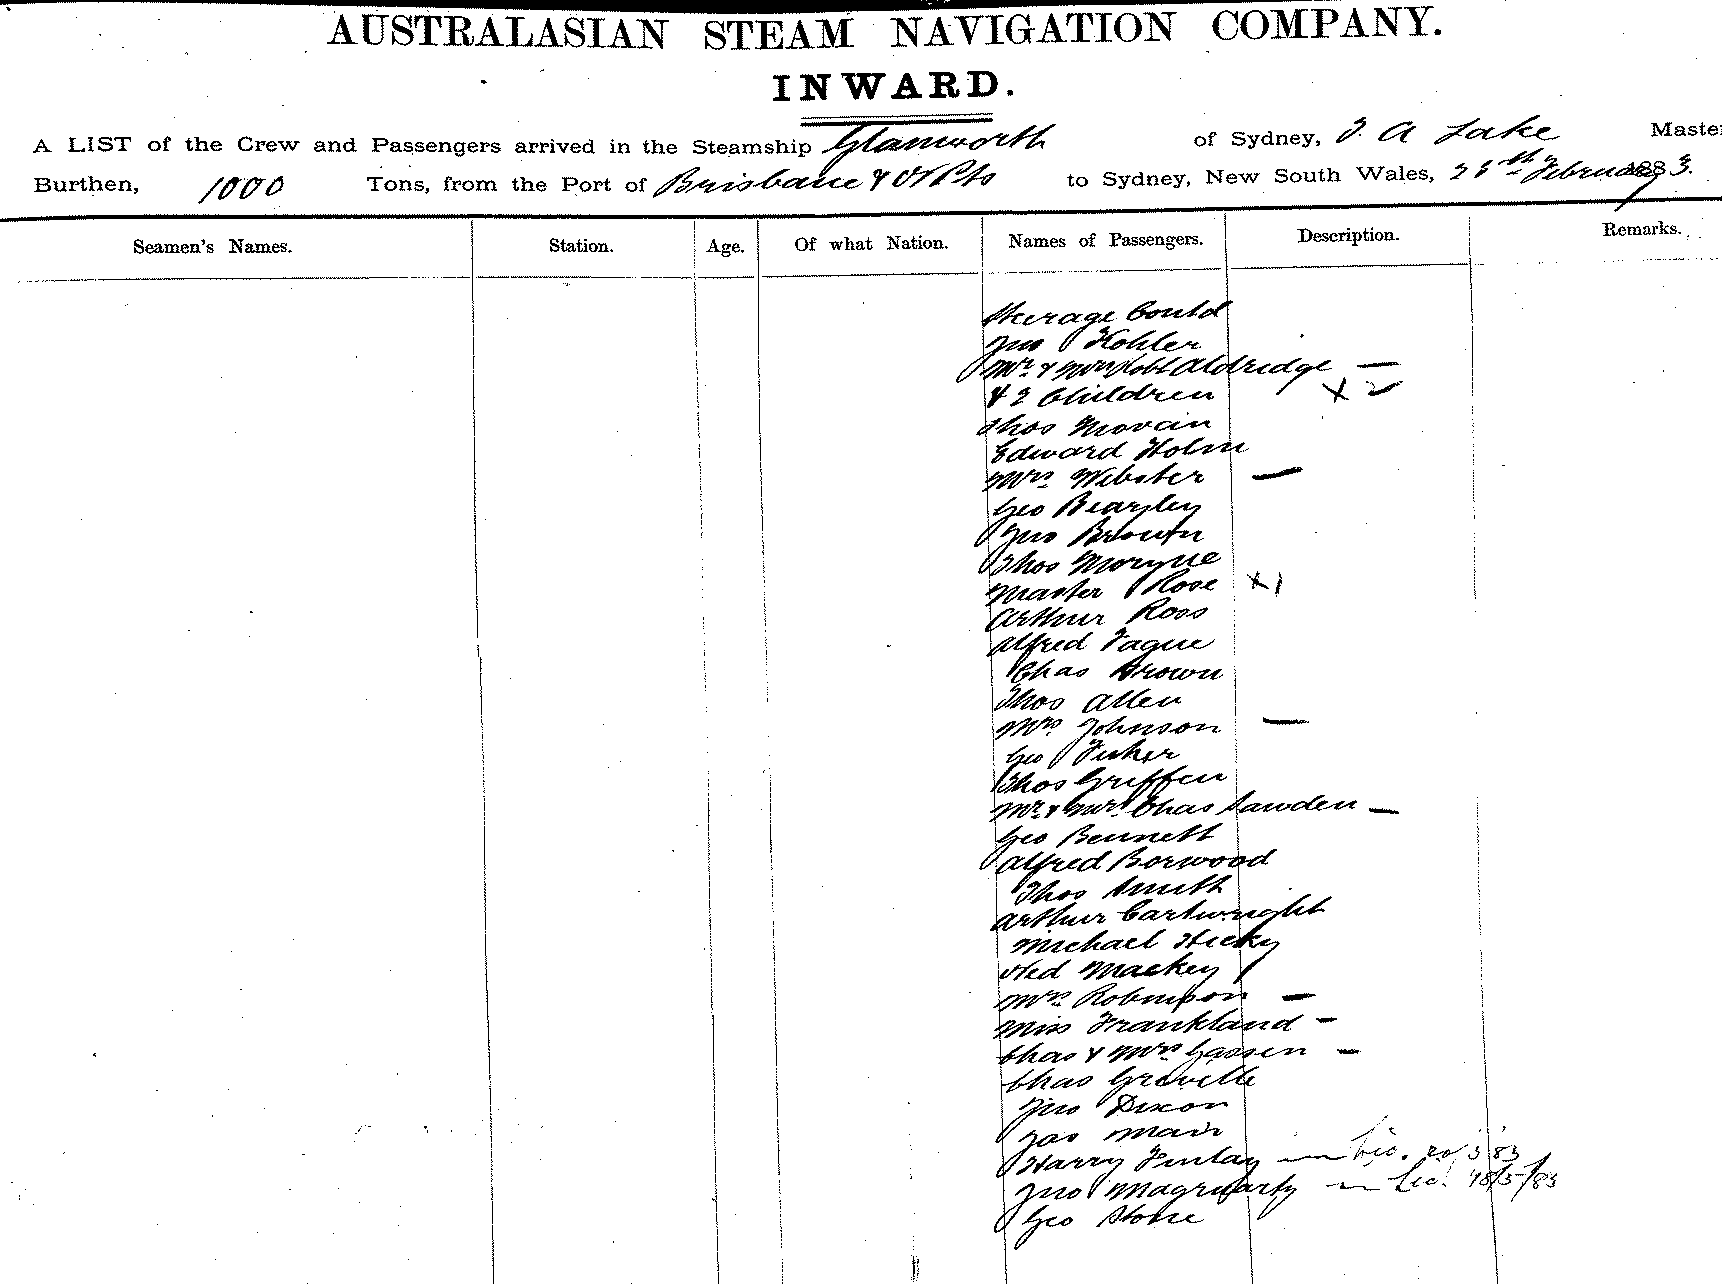 AUSTRALASIAN STEAM NAVIGATION COMPANY.
INWARD.
A LIST of the Crew and Passengers arrived in the Steamship Glanworth of Sydney, J. A Lake Master
Burthen, 1000 Tons, from the Port of Brisbane & to Sydney, New South Wales, February 1883.
Seamen's Names. Station. Age. Of what Nation. Names of Passengers. Description. Remarks.
Steerage Contd
Jno Kohler
Mr. & Mrs Robt Aldridge —
& 2 Children × 2
Thos
Edward Holm
Mrs. Webster —
Geo Bearsley
Jno Brown
Thos
Master Rose × 1
Arthur Ross
Alfred Tague
Chas Brown
Thos Allen
Mrs. Johnson —
Geo
Thos Griffen
Mr. & Mrs. Chas Sawden —
Geo Bennett
Alfred Borwood
Thos Smith
Arthur Cartwright
Michael Hicky
Ned Mackey
Mrs. Robinson —
Miss Frankland —
Chas & Mrs Gassen —
Chas Greville
Jno Dixon
Jas Main
Harry Finlay
Jno
Geo Stone